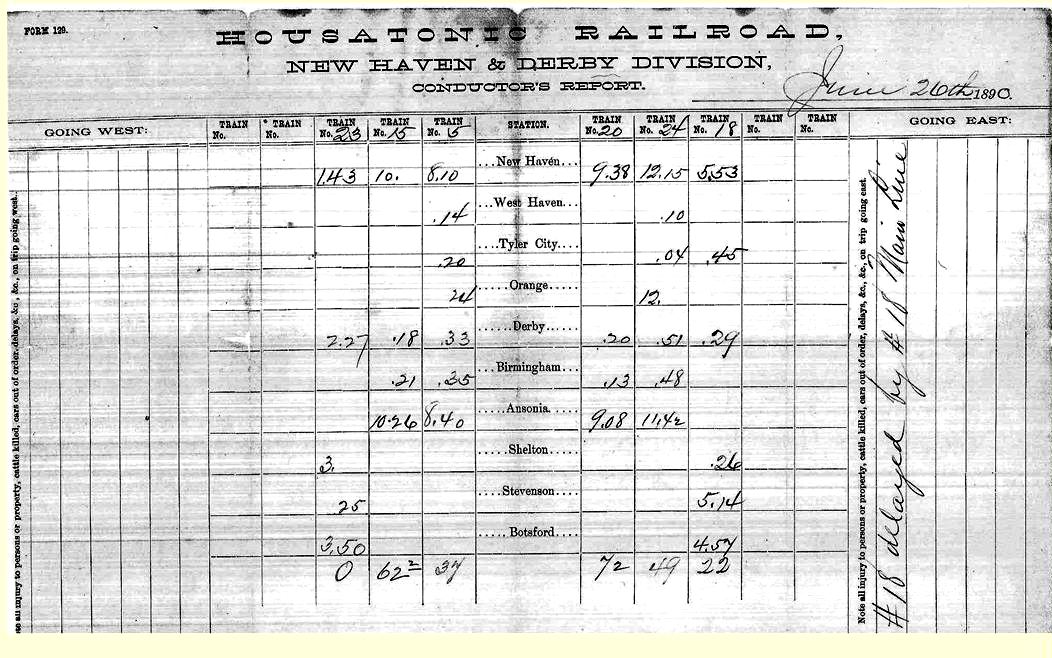 FORM 129.
HOUSATONIC RAILROAD,
NEW HAVEN & DERBY DIVISION,
CONDUCTOR'S REPORT.
June 26th 1890.
GOING WEST: TRAIN No. TRAIN No. TRAIN No. 23 TRAIN No. 15 TRAIN No. 5 STATION. TRAIN No. 20 TRAIN No. 24 TRAIN No. 18 TRAIN No. TRAIN No. GOING EAST:
1.43 10. 8.10 ...New Haven... 9.38 12.15 5.53
.14 ...West Haven... .10
.20 ....Tyler City.... .04 .45
24 .....Orange..... 12.
2.27 .18 .33 ......Derby...... .20 .51 .29
.21 .35 ...Birmingham... .13 .48
10.26 8.40 .....Ansonia..... 9.08 11.42
3. .....Shelton..... .26
25 ....Stevenson.... 5.14
3.50 .....Botsford.... 4.57
0 62 2 37 72 49 22
Note all injury to persons or property, cattle killed, cars out of order, delays, &c., &c., on trip going west.
Note all injury to persons or property, cattle killed, cars out of order, delays, &c., &c., on trip going east.
# 18 delayed by # 18 Main Line